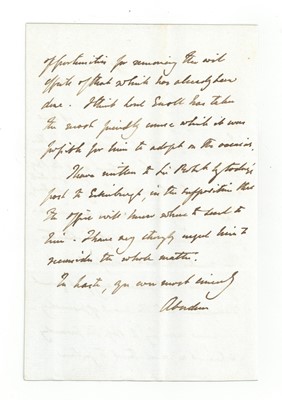 opportunities for removing the evil
effects of that which has already been
done. I think Lord Erroll has taken
the most friendly course which it was
possible for him to adopt on the occasion.
I have written to Sir by today's
post to Edinburgh, in the supposition that
the office will know where to send to
him. I have very strongly urged him to
reconsider the whole matter.
In haste, yrs ever most sincerely
Aberdeen